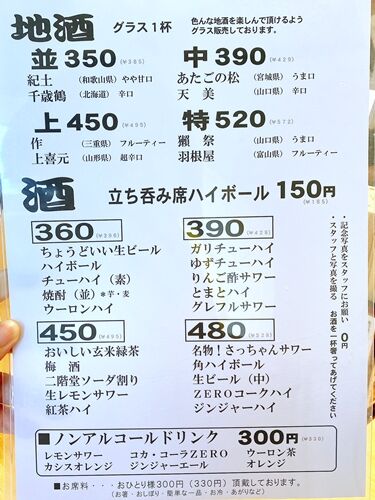 地酒 グラス1杯
色んな地酒を楽しんで頂けるよう
グラス販売しております。
並350(￥385)
紀土(和歌山県)やや甘口
千歳鶴(北海道)辛口
中390(￥429)
あたごの松(宮城県)うま口
天美(山口県)辛口
上450(￥495)
作(三重県)フルーティー
上喜元(山形県)超辛口
特520(￥572)
獺祭(山口県)うま口
羽根屋(富山県)フルーティー
酒 立ち呑み席ハイボール 150円(￥165)
360(￥396)
ちょうどいい生ビール
ハイボール
チューハイ(素)
焼酎(並)*芋・麦
ウーロンハイ
390(￥429)
ガリチューハイ
ゆずチューハイ
りんご酢サワー
とまとハイ
グレフルサワー
450(￥495)
おいしい玄米緑茶
梅酒
二階堂ソーダ割り
生レモンサワー
紅茶ハイ
480(￥528)
名物！さっちゃんサワー
角ハイボール
生ビール(中)
ZEROコークハイ
ジンジャーハイ
・記念写真をスタッフにお願い 0円
・スタッフと写真を撮る お酒を一杯奢ってあげてください
■ノンアルコールドリンク 300円(￥330)
レモンサワー コカ・コーラZERO ウーロン茶
カシスオレンジ ジンジャーエール オレンジ
■お席料・・・おひとり様300円(330円)頂戴しております。
(お箸・おしぼり・簡単な一品・お冷・あがりなど)